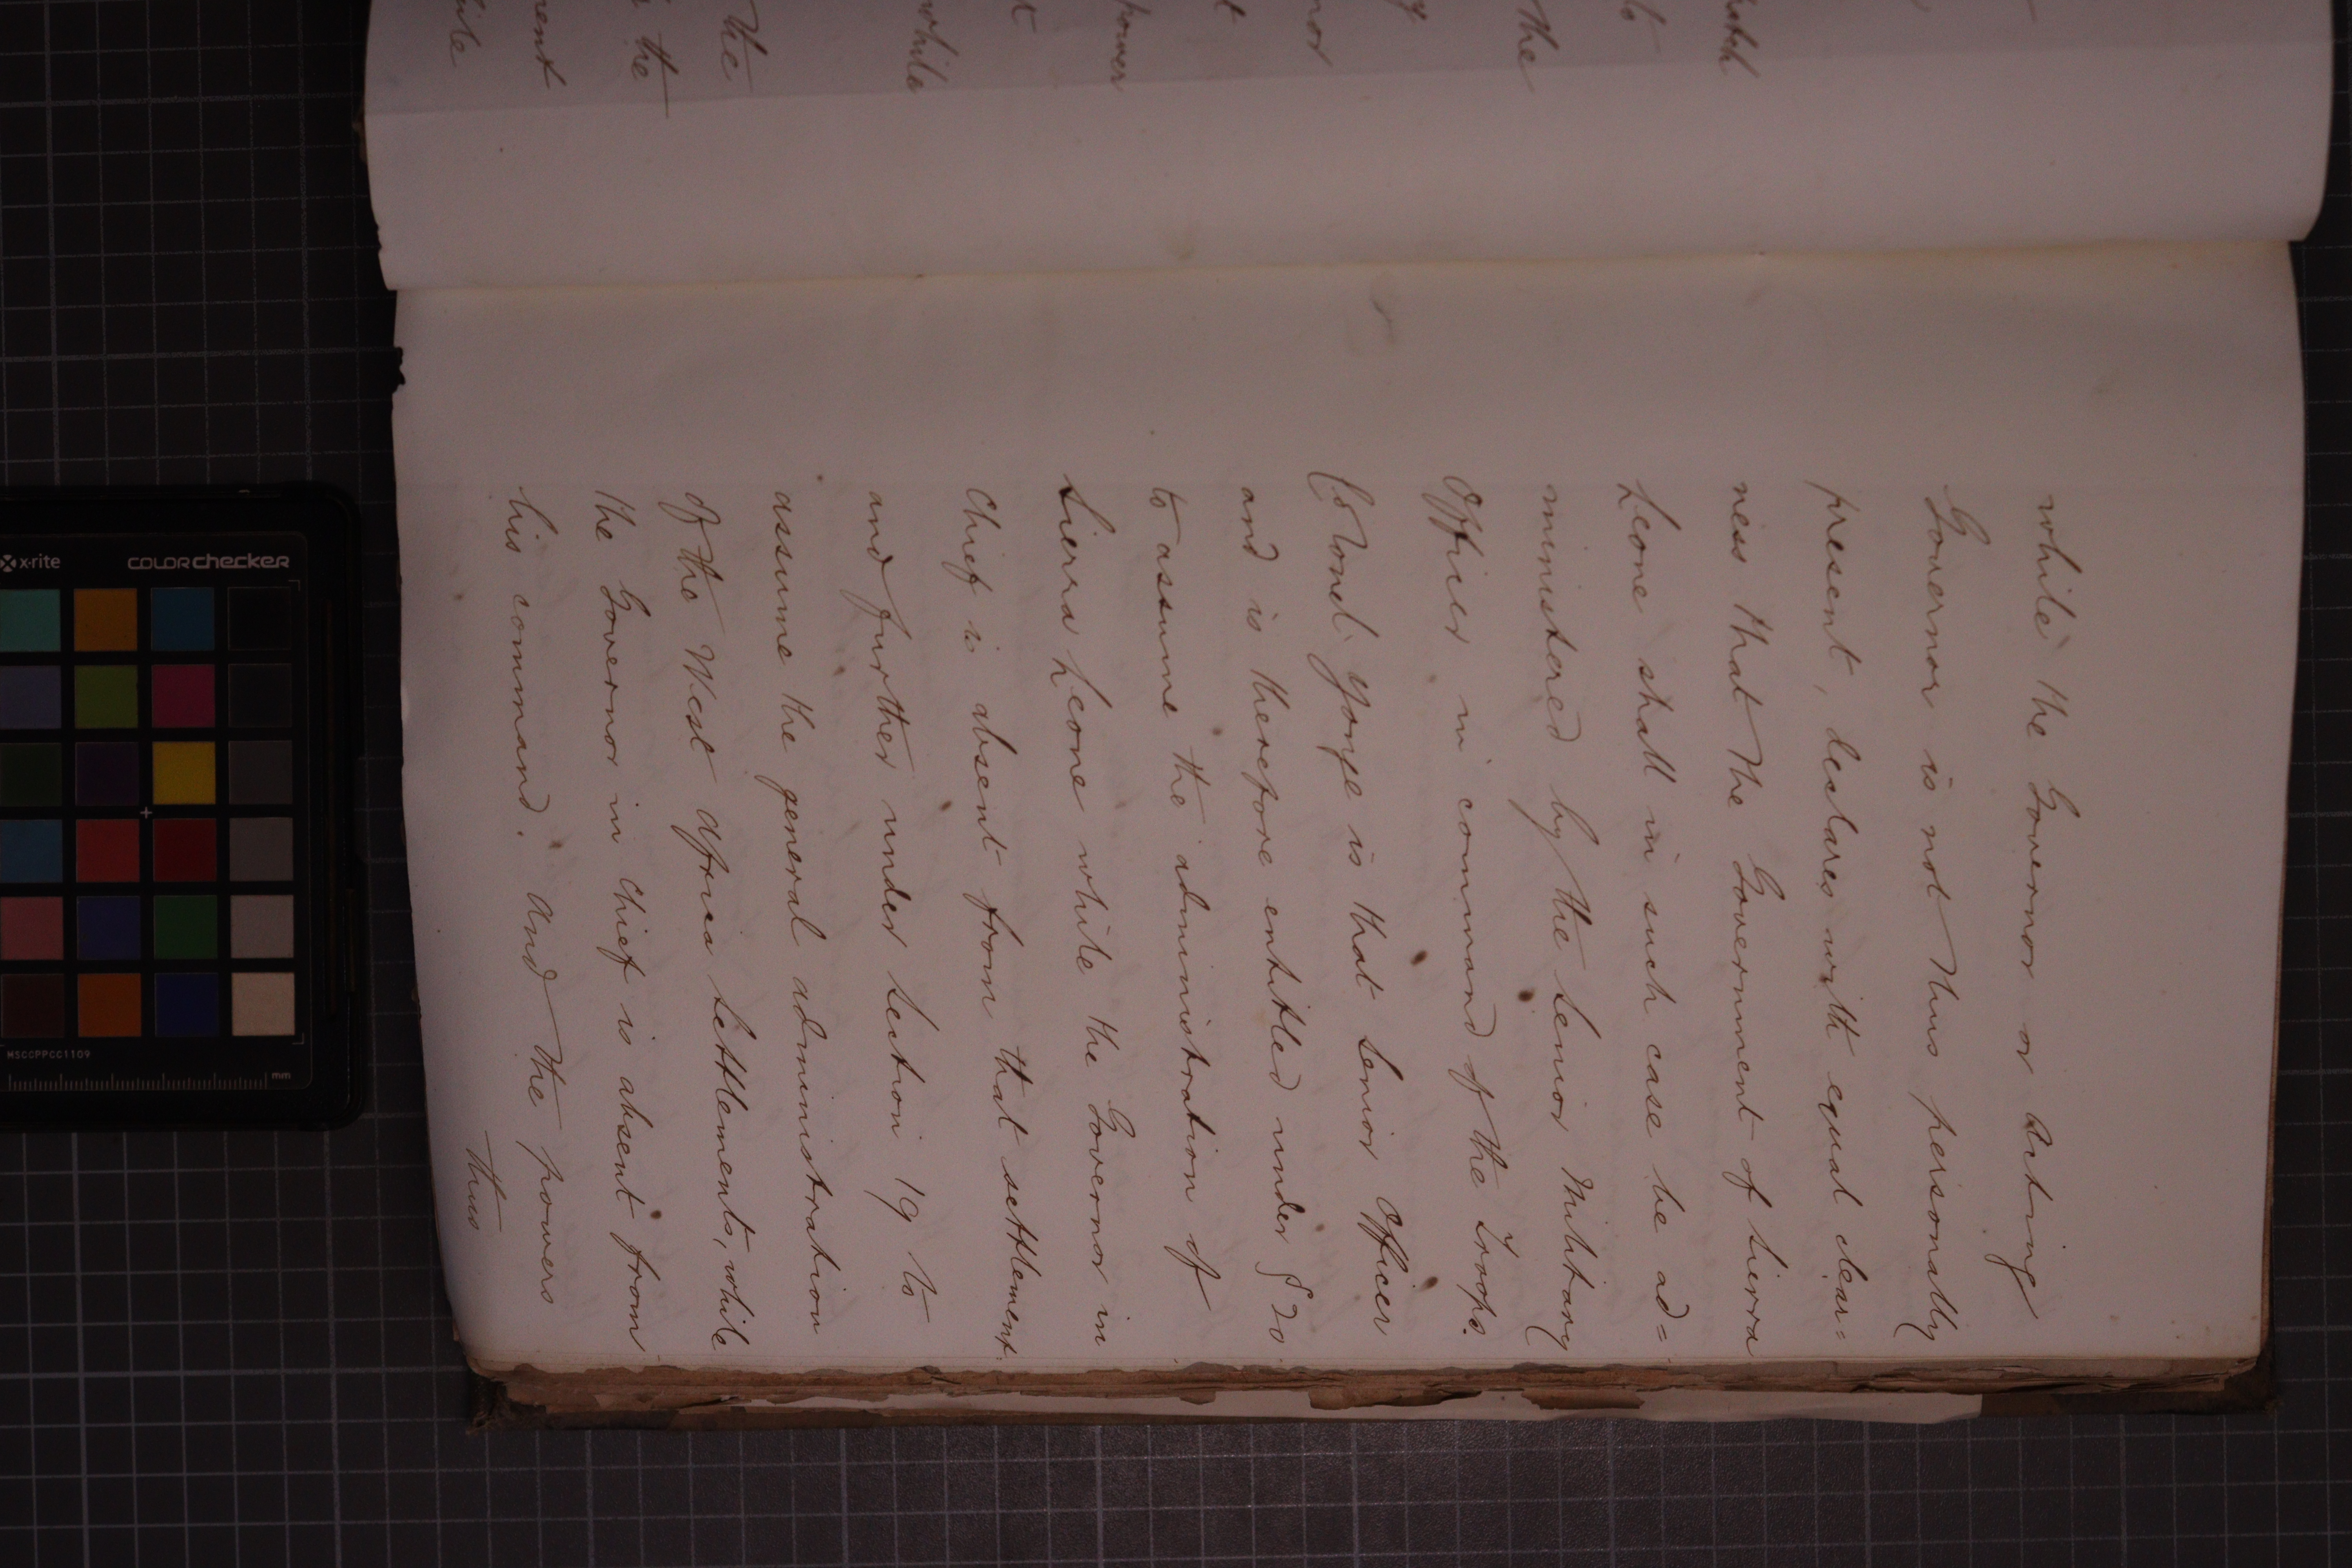 while the Governor or Acting
Governor is not thus personally
present, declares with equal clear=
ness that the Government of Sierra
Leone shall in such case be ad=
ministered by the Senior Military
Officer in command of the Troops.
Colonel Yonge is that Senior Officer
and is therefore entitled under § 20
to assume the administration of
Sierra Leone while the Governor in
Chief is absent from that settlement
and further under Section 19 to
assume the general administration
of the West Africa Settlements, while
the Governor in Chief is absent from
his command. And the powers
thus
the
to
the
nor
power
t
while
the
the
x-rite
colorchecker
MSCCPPCC1109
mm